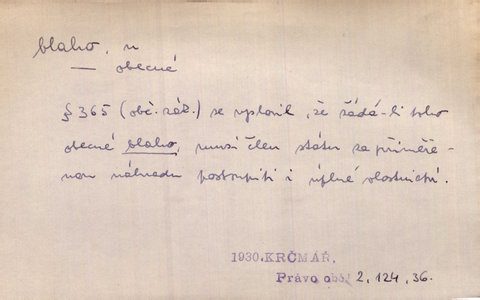 blaho, n
— obecné
§ 365 (obč. zák.) se vyslovil, že žádá-li toho
obecné blaho, musí člen státu za přiměře-
nou náhradu postoupiti i úplné vlastnictví.
1930. KRČMÁŘ.
Právo obč. 2, 124, 36.